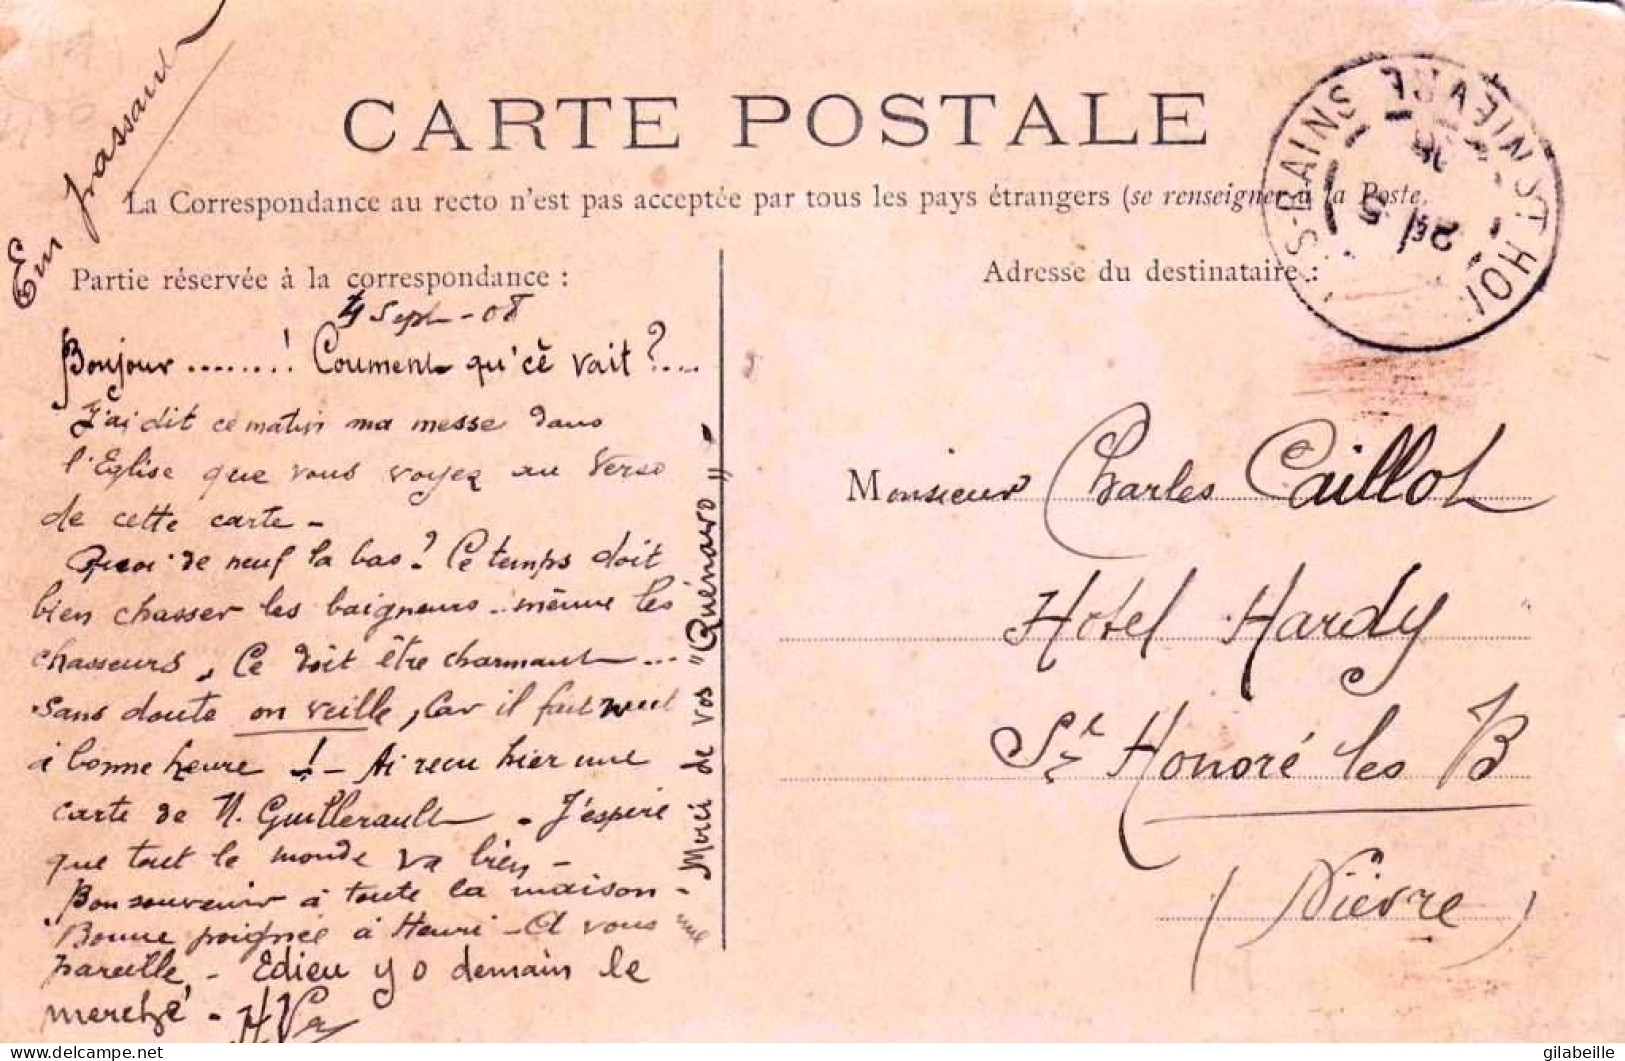 En passant
CARTE POSTALE
La Correspondance au recto n'est pas acceptée par tous les pays étrangers (se renseigner à la Poste.
Partie réservée à la correspondance :
Adresse du destinataire :
4 Sept - 08
Bonjour ........! Coument qu'cè vait ?....
J'ai dit ce matin ma messe dans
l'Eglise que vous voyez au verso
de cette carte -
Quoi de neuf la bas ? Ce temps doit
bien chasser les baigneurs .. même les
chasseurs, Ce doit être charmant ...
sans doute on veille, Car il fait nuit
à bonne heure ! - Ai reçu hier une
carte de M. Guillerault - J'espère
que tout le monde va bien -
Bon souvenir à toute la maison -
Bonne poignée à Henri - A vous une
pareille - Edieu y o demain le
merché -
Merci de vos "Quénauro" -
Monsieur Charles Caillot
Hotel Hardy
St Honoré les B
(Nièvre)
ST HON S-BAINS NIEVRE
5
delcampe.net
gilabeille